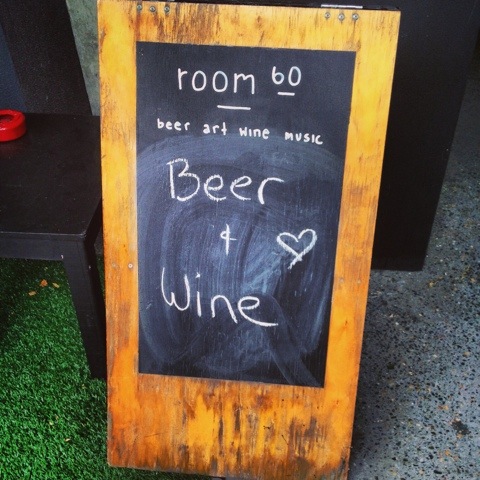 room 60
beer art wine music
Beer
&
Wine